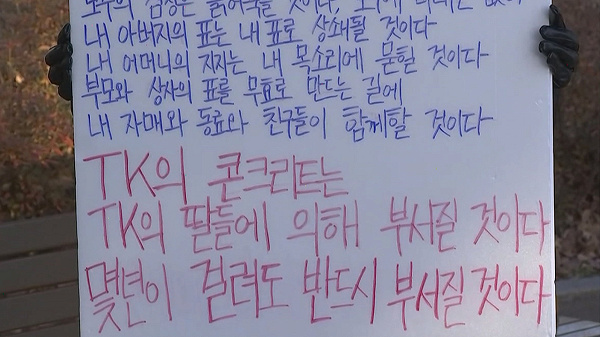 내 아버지의 표는 내 표로 상쇄될 것이다
내 어머니의 지지는 내 목소리에 묻힐 것이다
부모와 상사의 표를 무효로 만드는 길에
내 자매와 동료와 친구들이 함께할 것이다
TK의 콘크리트는
TK의 딸들에 의해 부서질 것이다
몇년이 걸려도 반드시 부서질 것이다